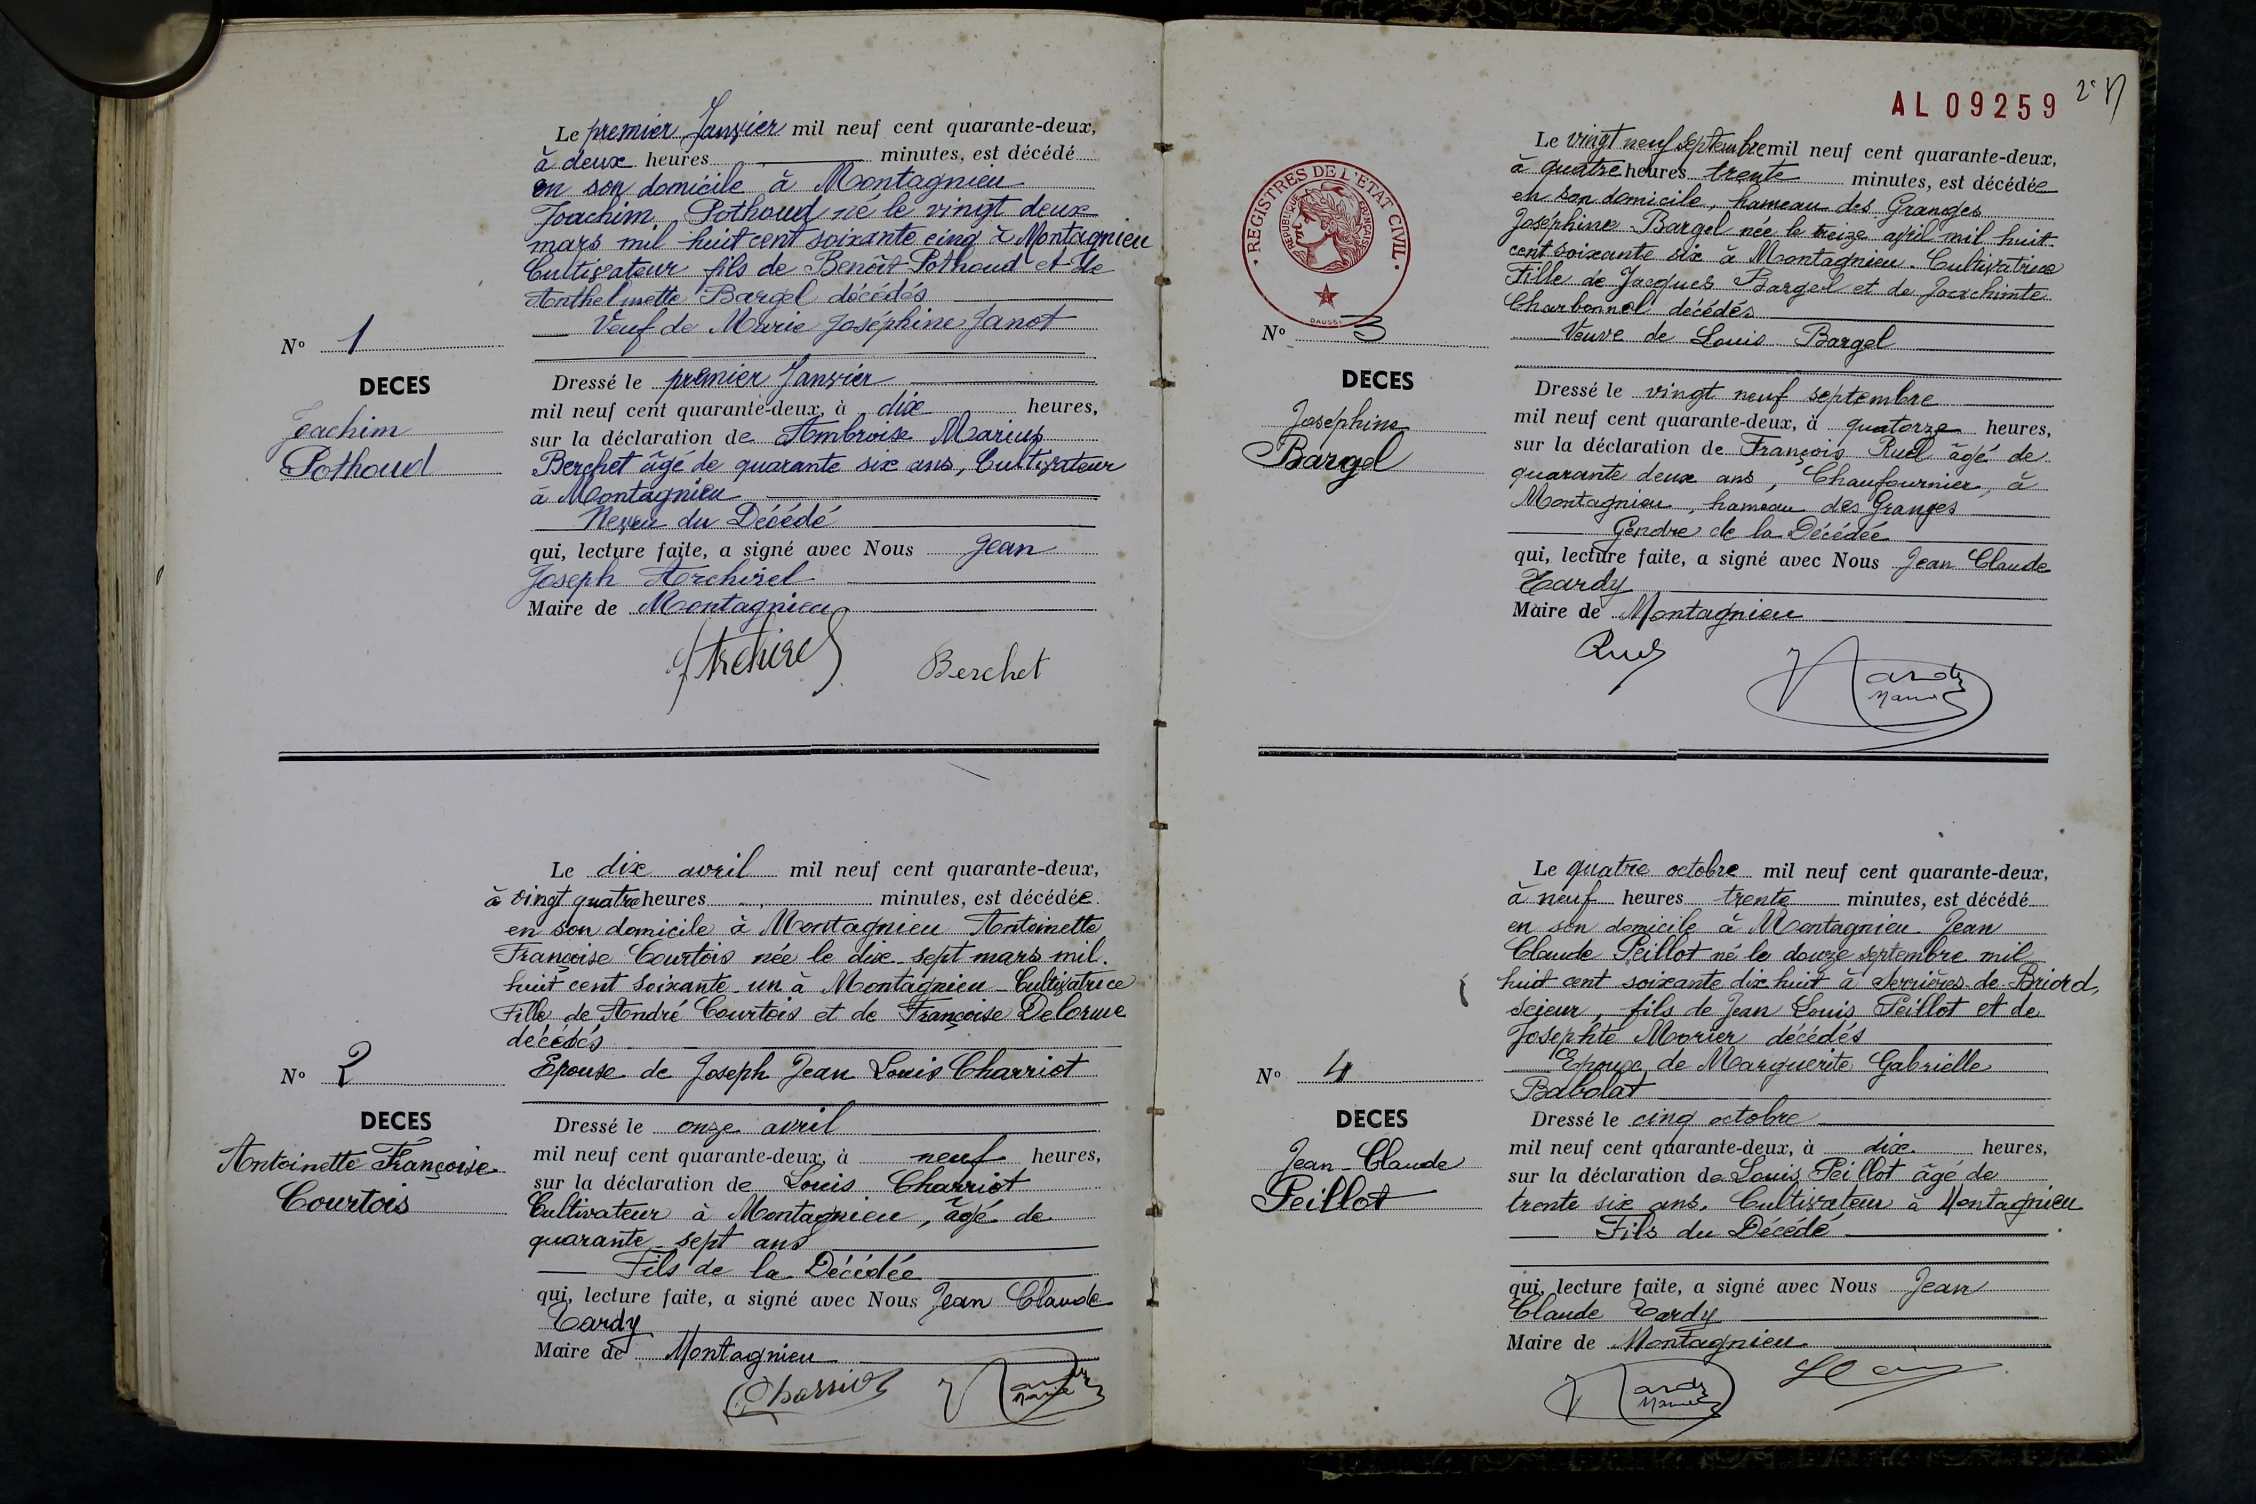 Le premier Janvier mil neuf cent quarante-deux,
à deux heures minutes, est décédé
en son domicile à Montagnieu
Joachim Pothoud né le vingt deux
mars mil huit cent soixante cinq à Montagnieu
Cultivateur fils de Benoît Pothoud et de
Anthelmette Bargel décédés
Veuf de Marie Joséphine Janot
N° 1
DECES
Joachim
Pothoud
Dressé le premier Janvier
mil neuf cent quarante-deux, à dix heures,
sur la déclaration de Ambroise Marius
Berchet âgé de quarante six ans, Cultivateur
à Montagnieu
Neveu du Décédé
qui, lecture faite, a signé avec Nous Jean
Joseph Archirel
Maire de Montagnieu
Archirel Berchet
Le dix avril mil neuf cent quarante-deux,
à vingt quatre heures minutes, est décédée
en son domicile à Montagnieu Antoinette
Françoise Courtois née le dix-sept mars mil
huit cent soixante-un à Montagnieu-Cultivatrice
Fille de André Courtois et de Françoise Delorme
décédés
Epouse de Joseph Jean Louis Charriot
N° 2
DECES
Antoinette Françoise
Courtois
Dressé le onze avril
mil neuf cent quarante-deux, à neuf heures,
sur la déclaration de Louis Charriot
Cultivateur à Montagnieu, âgé de
quarante-sept ans
Fils de la Décédée
qui, lecture faite, a signé avec Nous Jean Claude
Tardy
Maire de Montagnieu
Charriot Tardy Maire
AL 09259
REGISTRES DE L'ETAT CIVIL
REPUBLIQUE FRANÇAISE
Le vingt neuf septembre mil neuf cent quarante-deux,
à quatre heures trente minutes, est décédée
en son domicile, hameau des Granges
Joséphine Bargel née le treize avril mil huit
cent soixante six à Montagnieu. Cultivatrice
Fille de Jacques Bargel et de Joachimte
Charbonnel décédés
Veuve de Louis Bargel
N° 3
DECES
Josephine
Bargel
Dressé le vingt neuf septembre
mil neuf cent quarante-deux, à quatorze heures,
sur la déclaration de François Ruel âgé de
quarante deux ans, Chaufournier, à
Montagnieu, hameau des Granges
Gendre de la Décédée
qui, lecture faite, a signé avec Nous Jean Claude
Tardy
Maire de Montagnieu
Ruel Tardy Maire
Le quatre octobre mil neuf cent quarante-deux,
à neuf heures trente minutes, est décédé
en son domicile à Montagnieu Jean
Claude Peillot né le douze septembre mil
huit cent soixante dix huit à Serrières-de-Briord,
scieur, fils de Jean Louis Peillot et de
Josephte Morier décédés
Epoux de Marguerite Gabrielle
Babolat
N° 4
DECES
Jean-Claude
Peillot
Dressé le cinq octobre
mil neuf cent quarante-deux, à dix heures,
sur la déclaration de Louis Peillot âgé de
trente six ans. Cultivateur à Montagnieu
Fils du Décédé
qui, lecture faite, a signé avec Nous Jean
Claude Tardy
Maire de Montagnieu
Tardy Maire